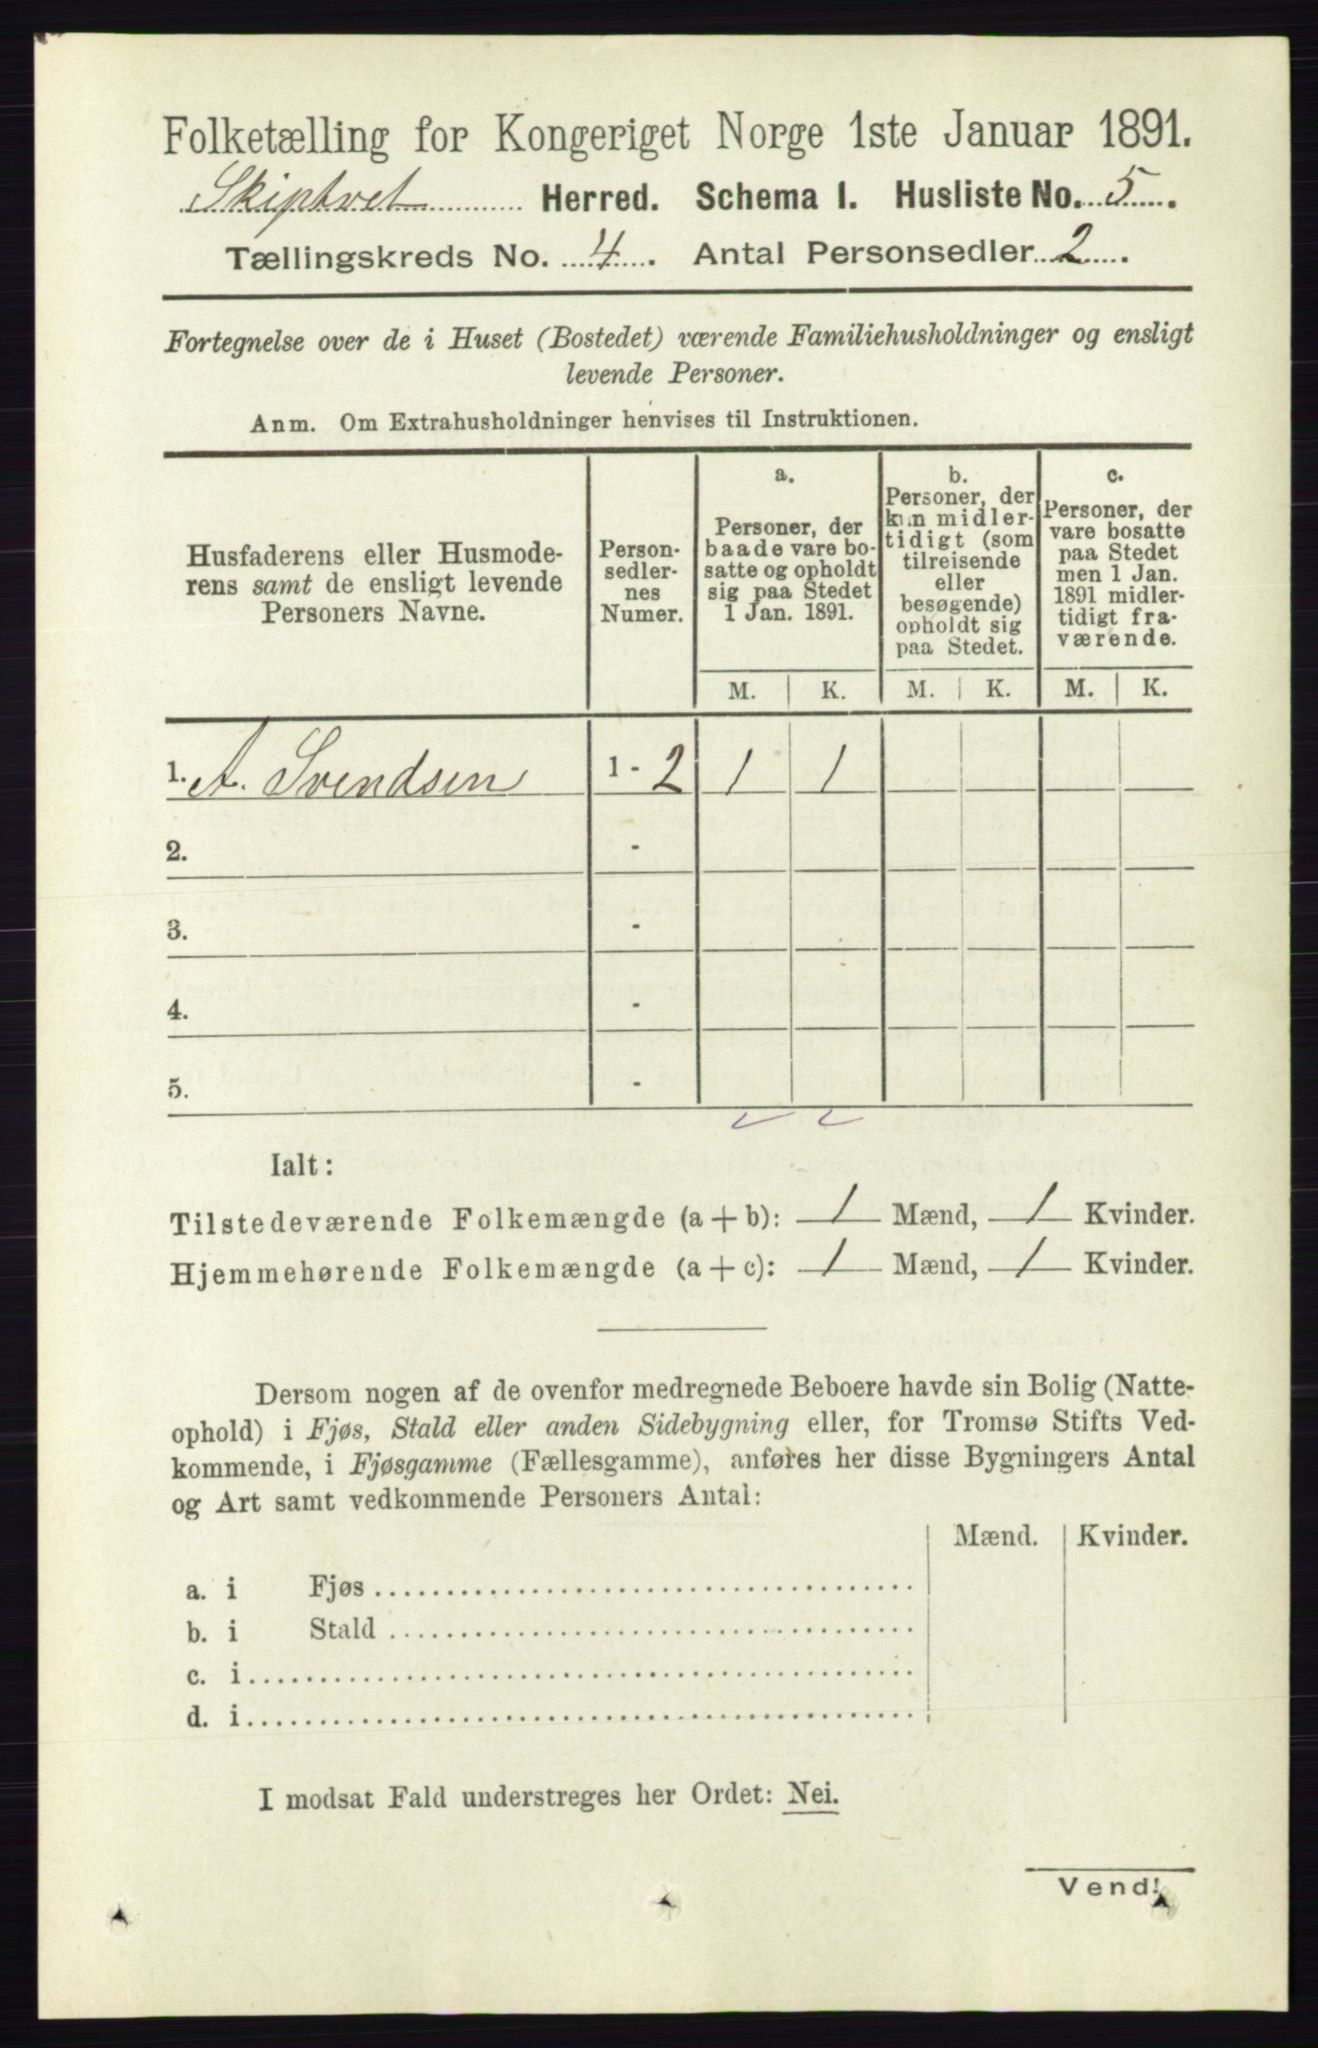 Folketælling for Kongeriget Norge 1ste Januar 1891.
Skiptvet Herred. Schema I. Husliste No. 5.
Tællingskreds No. 4. Antal Personsedler 2.
Fortegnelse over de i Huset (Bostedet) værende Familiehusholdninger og ensligt
levende Personer.
Anm. Om Extrahusholdninger henvises til Instruktionen.
Husfaderens eller Husmode-
rens samt de ensligt levende
Personers Navne.
Person-
sedler-
nes
Numer.
a.
Personer, der
baade vare bo-
satte og opholdt
sig paa Stedet
1 Jan. 1891.
b.
Personer, der
kun midler-
tidigt (som
tilreisende
eller
besøgende)
opholdt sig
paa Stedet.
c.
Personer, der
vare bosatte
paa Stedet
men 1 Jan.
1891 midler-
tidigt fra-
værende.
M. K. M. K. M. K.
1. A. Svendsen 1 - 2 1 1
2. -
3. -
4. -
5. -
Ialt:
Tilstedeværende Folkemængde (a + b): 1 Mænd, 1 Kvinder.
Hjemmehørende Folkemængde (a + c): 1 Mænd, 1 Kvinder.
Dersom nogen af de ovenfor medregnede Beboere havde sin Bolig (Natte-
ophold) i Fjøs, Stald eller anden Sidebygning eller, for Tromsø Stifts Ved-
kommende, i Fjøsgamme (Fællesgamme), anføres her disse Bygningers Antal
og Art samt vedkommende Personers Antal:
Mænd. Kvinder.
a. i Fjøs
b. i Stald
c. i
d. i
I modsat Fald understreges her Ordet: Nei.
Vend!